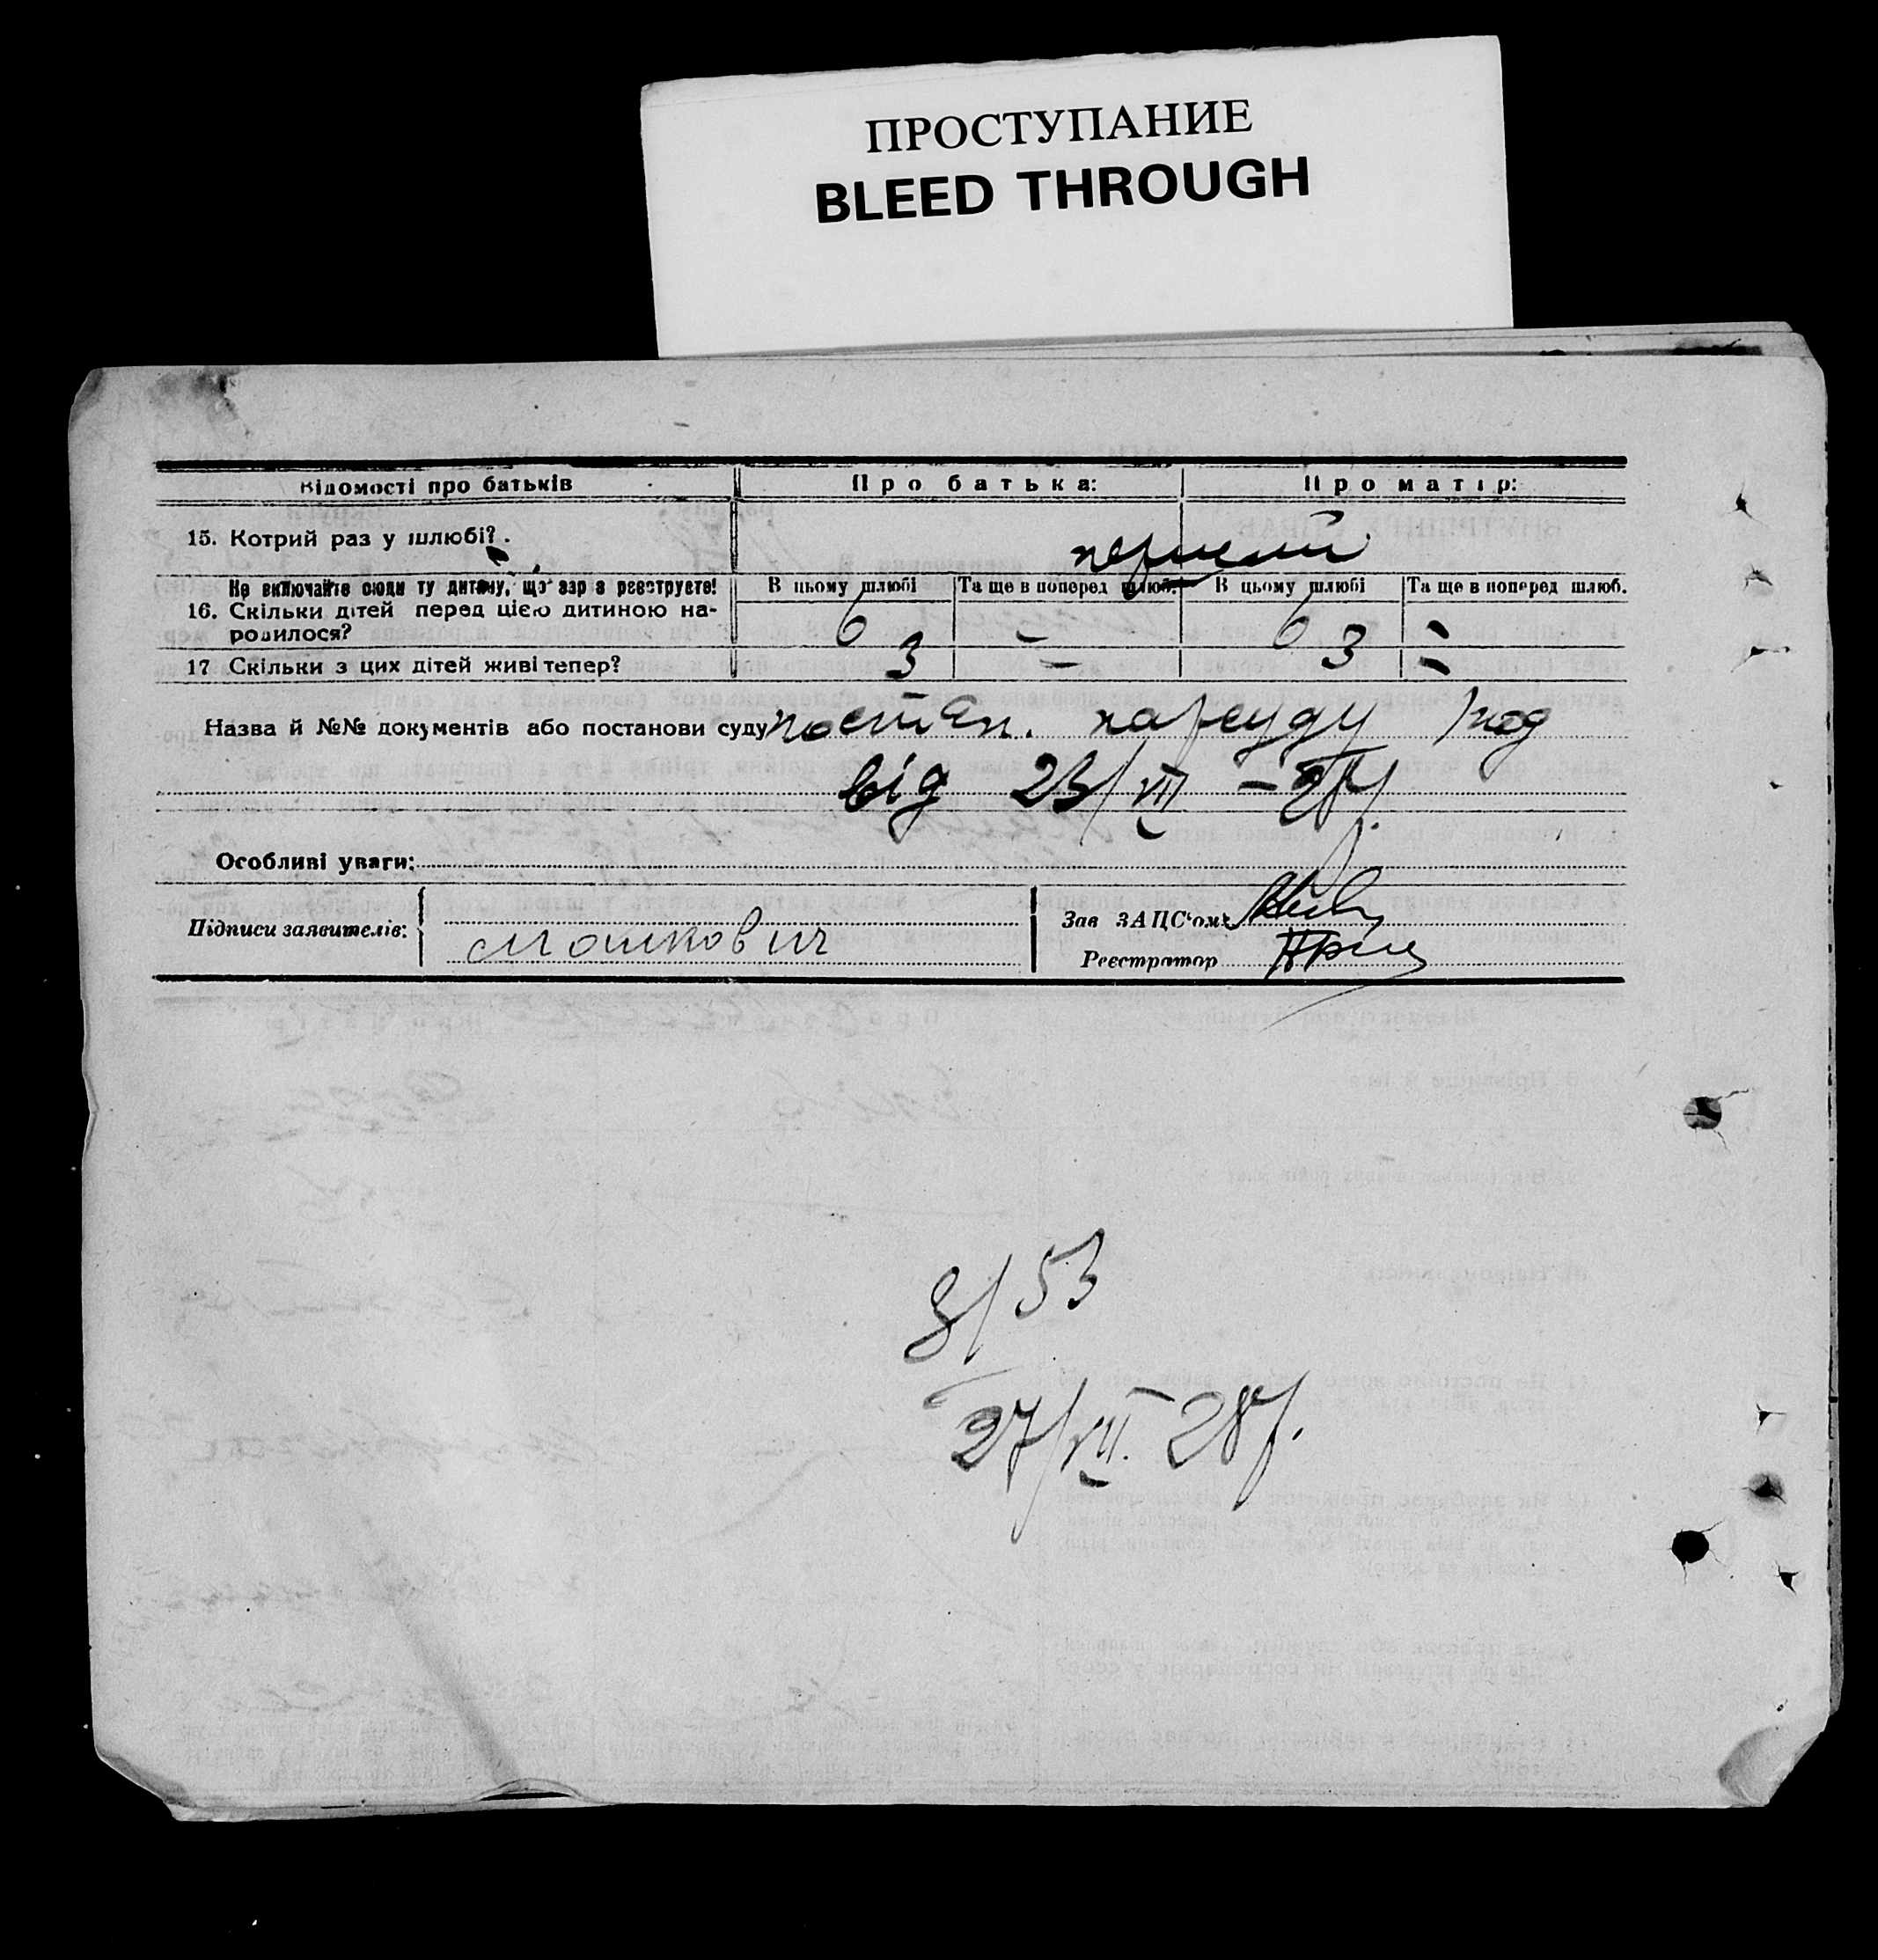 ПРОСТУПАНИЕ
BLEED THROUGH
Відомості про батьків Про батька: Про матір:
15. Котрий раз у шлюбі? перший
Не включайте сюди ту дитину, що зараз реєструєте! В цьому шлюбі Та ще в поперед шлюб. В цьому шлюбі Та ще в поперед шлюб.
16. Скільки дітей перед цією дитиною на-
родилося? 6 – 6 –
17 Скільки з цих дітей живі тепер? 3 – 3 –
Назва й №№ документів або постанови суду постан. нарсуду
від 23/VII – 28р.
Особливі уваги:
Підписи заявителів: Машкович
Зав ЗАЦС'ом:
Реєстратор
8/53
27/VII. 28р.